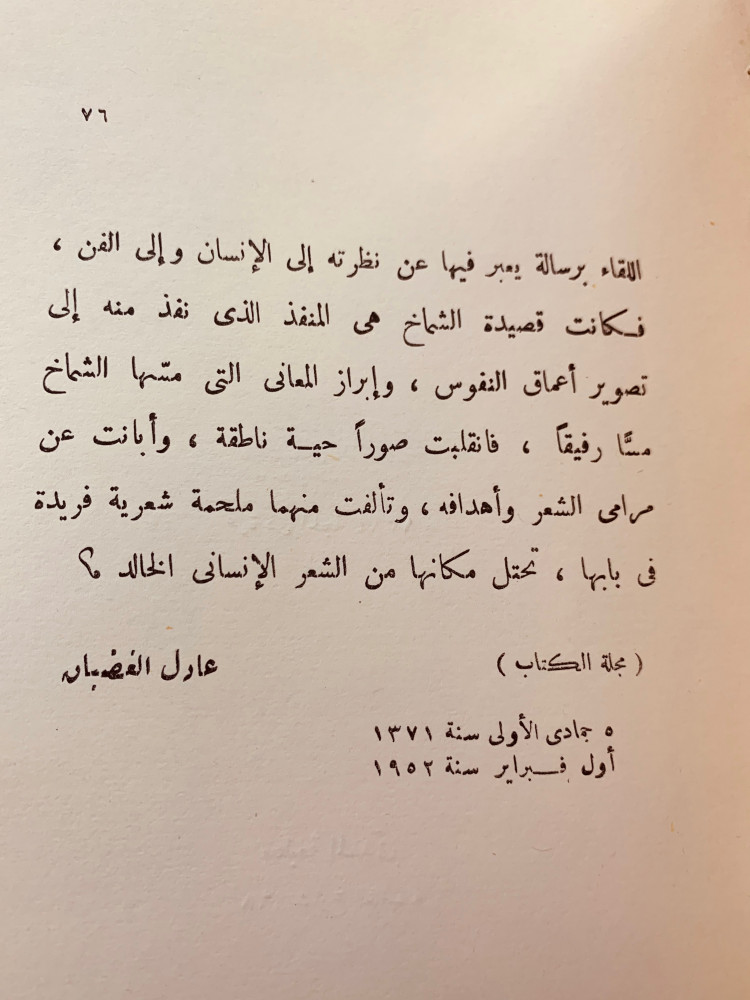 ٧٦
اللقاء برسالة يعبر فيها عن نظرته إلى الإنسان وإلى الفن ،
فكانت قصيدة الشماخ هى المنفذ الذى نفذ منه إلى
تصوير أعماق النفوس ، وإبراز المعانى التى مسّها الشماخ
مسًّا رفيقاً ، فانقلبت صوراً حيـة ناطقة ، وأبانت عن
مرامى الشعر وأهدافه ، وتألفت منهما ملحمة شعرية فريدة
فى بابها ، تحتل مكانها من الشعر الإنسانى الخالد ؟
( مجلة الكتاب ) عادل الغضبان
٥ جمادى الأولى سنة ١٣٧١
أول فـبراير سنة ١٩٥٢